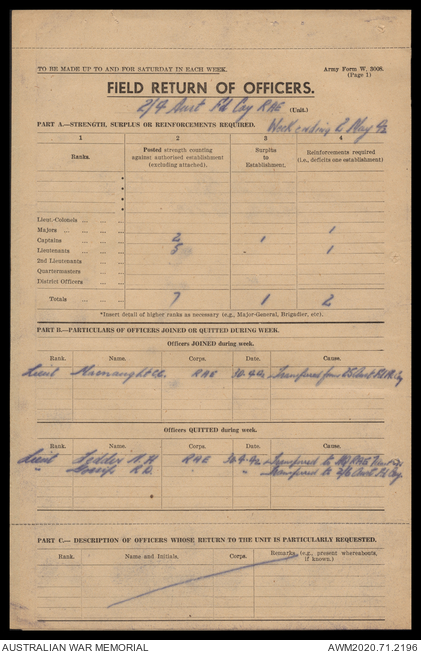 TO BE MADE UP TO AND FOR SATURDAY IN EACH WEEK. Army Form W. 3008.
(Page 1)
FIELD RETURN OF OFFICERS.
2/4 Aust Fd Coy RAE (Unit.)
Week ending 2 May 42
PART A.—STRENGTH, SURPLUS OR REINFORCEMENTS REQUIRED.
1 2 3 4
Ranks. Posted strength counting against authorised establishment (excluding attached). Surplus to Establishment. Reinforcements required (i.e., deficits one establishment)
*
*
*
*
Lieut.-Colonels
Majors 1
Captains 2 1
Lieutenants 5 1
2nd Lieutenants
Quartermasters
District Officers
Totals 7 1 2
*Insert detail of higher ranks as necessary (e.g., Major-General, Brigadier, etc).
PART B.—PARTICULARS OF OFFICERS JOINED OR QUITTED DURING WEEK.
Officers JOINED during week.
Rank. Name. Corps. Date. Cause.
Lieut RAE Transferred from Aust Fd Coy
Officers QUITTED during week.
Rank. Name. Corps. Date. Cause.
Lieut N. H. RAE Transferred to
" R. D. " " Transferred to 2/6 Aust Fd Coy
PART C.— DESCRIPTION OF OFFICERS WHOSE RETURN TO THE UNIT IS PARTICULARLY REQUESTED.
Rank. Name and Initials. Corps. Remarks (e.g., present whereabouts, if known.)
AUSTRALIAN WAR MEMORIAL AWM2020.71.2196